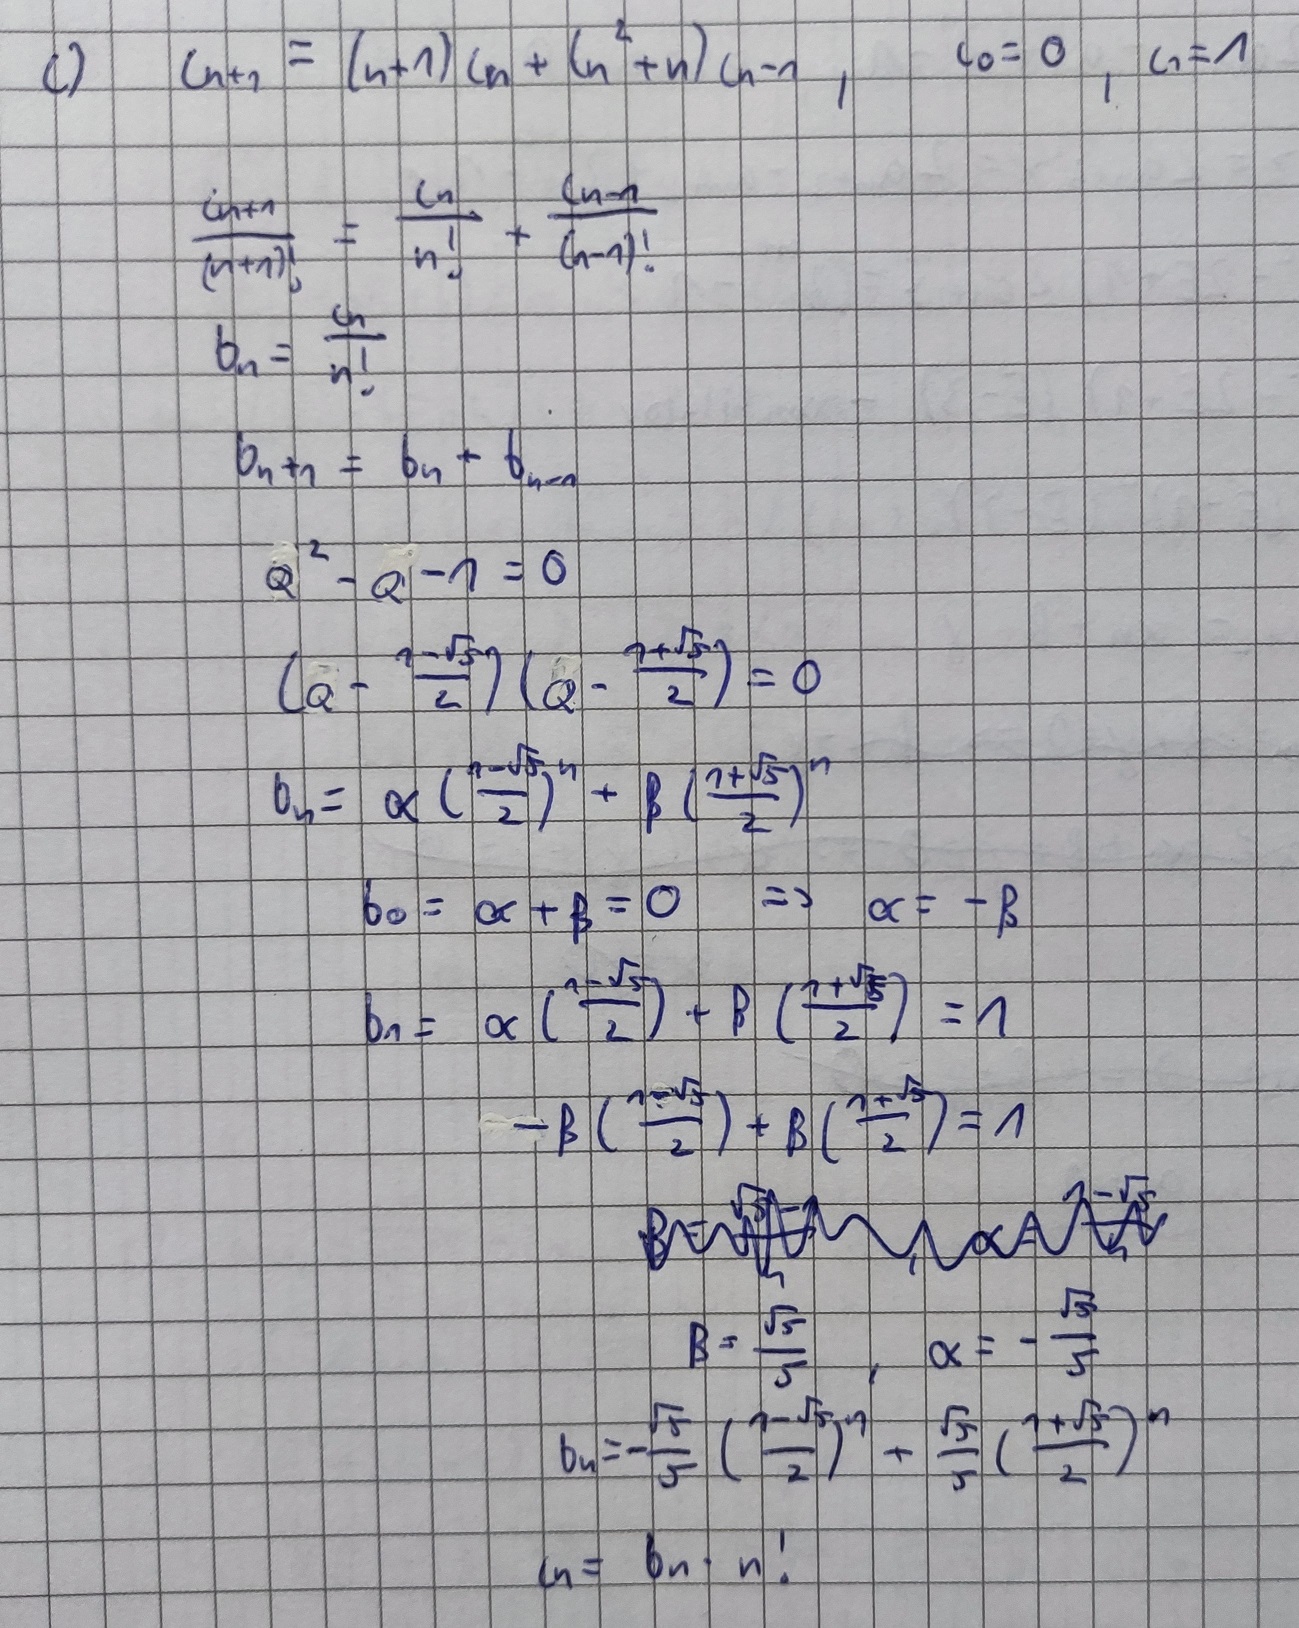 c) c_{n+1} = (n+1) c_n + (n^2+n) c_{n-1} , c_0 = 0 , c_1 = 1
\frac{c_{n+1}}{(n+1)!} = \frac{c_n}{n!} + \frac{c_{n-1}}{(n-1)!}
b_n = \frac{c_n}{n!}
b_{n+1} = b_n + b_{n-1}
Q^2 - Q - 1 = 0
(Q - \frac{1-\sqrt{5}}{2}) (Q - \frac{1+\sqrt{5}}{2}) = 0
b_n = α (\frac{1-\sqrt{5}}{2})^n + β (\frac{1+\sqrt{5}}{2})^n
b_0 = α + β = 0 => α = -β
b_1 = α (\frac{1-\sqrt{5}}{2}) + β (\frac{1+\sqrt{5}}{2}) = 1
-β (\frac{1-\sqrt{5}}{2}) + β (\frac{1+\sqrt{5}}{2}) = 1
β = \frac{\sqrt{5}}{5} , α = -\frac{\sqrt{5}}{5}
b_n = -\frac{\sqrt{5}}{5} (\frac{1-\sqrt{5}}{2})^n + \frac{\sqrt{5}}{5} (\frac{1+\sqrt{5}}{2})^n
c_n = b_n · n!